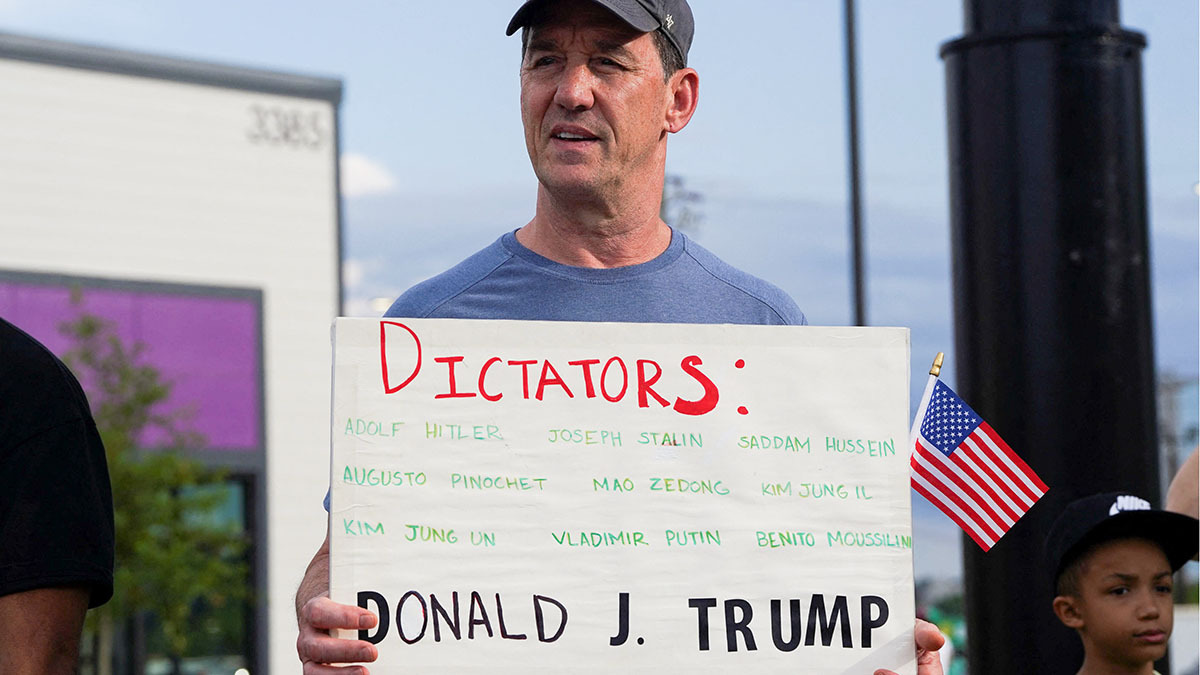 3385
DICTATORS:
ADOLF HITLER JOSEPH STALIN SADDAM HUSSEIN
AUGUSTO PINOCHET MAO ZEDONG KIM JUNG IL
KIM JUNG UN VLADIMIR PUTIN BENITO MOUSSILINI
DONALD J. TRUMP
NIKE